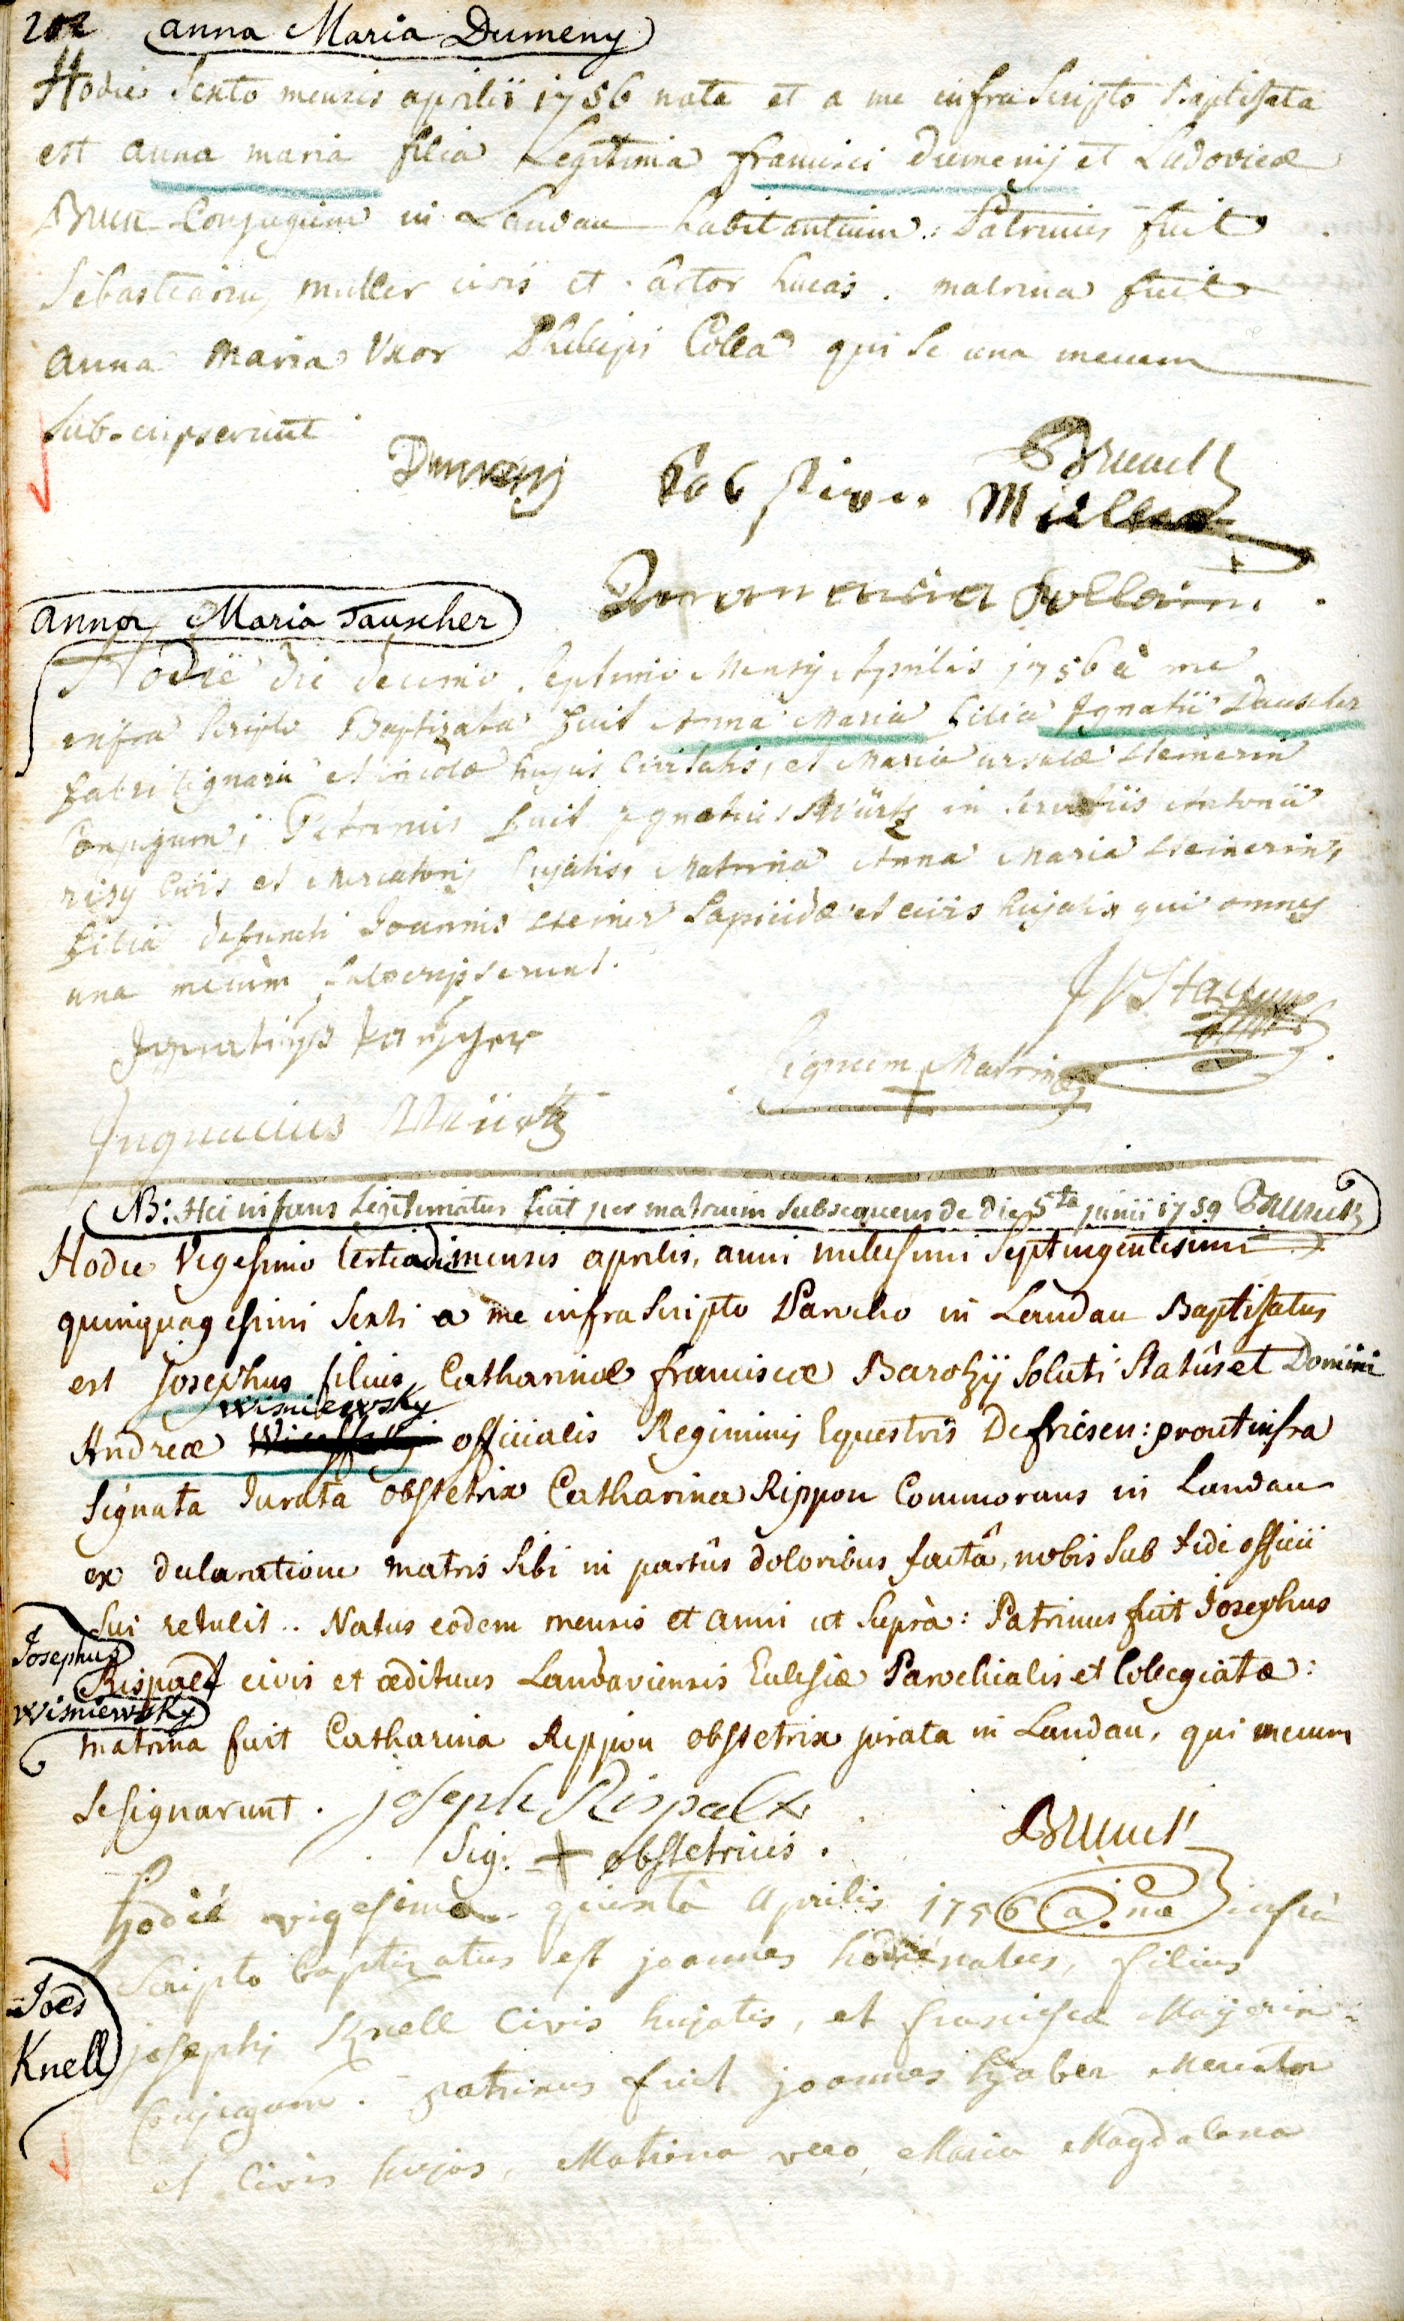 202 anna Maria Dumeny
Hodie Sexto mensis aprilis 1756 nata et a me infra Scripto Baptisata
est anna maria filia Legitima francisci dumenij et Ludovicæ
Brun Conjugum in Landau habitantium. Patrinus fuit
Sebastianus muller civis et sartor hicas. matrina fuit
anna maria Uxor Philippi Colla qui se una mecum
Subscripserunt
Dumenij Brunck
Sebastian Miller
anna maria Collain
anna Maria Tauscher
Hodie die decimo septimo Mensis Aprilis 1756 à me
infra scripto Baptizata fuit Anna Maria filia Ignatii Dauscher
fabri lignarii et incolæ hujus Civitatis, et Maria ursulæ Steinerin
Conjugum; Patrinus fuit Ignatius Würtz in servitiis Antonii
risy Civis et Mercatoris hujatis, Matrina Anna Maria Steinerin,
filia defuncti Joannis Steiner Lapicidæ et civis hujatis qui omnes
una mecum subscripserunt.
Ignatius tauscher
Signum Matrinæ
Ingnacius Würtz
NB: Hic infans Legitimatus fuit per matrim subsequens de die 5ta junii 1759 Brunck
Hodie Vigesimo tertia die mensis aprilis, anni millesimi Septingentesimi
quinquagesimi Sexti a me infra Scripto Parocho in Landau Baptisatus
est Josephus filius Catharinæ franciscæ Barothÿ Soluti Statûs et Domini
wisniewsky
Andreæ officialis Regiminis Equestris De friesen: prout infra
Signata Jurata obstetrix Catharina Rippon Commorans in Landau
ex declaratione matris sibi in partûs doloribus factâ, nobis sub fide officii
sui retulit.. Natus eodem mensis et anni ut Suprà: Patrinus fuit Josephus
Josephus
Rispalt civis et ædituus Landaviensis Eclesiæ Parochialis et Collegiatæ:
Wisniewsky
matrina fuit Catharina Rippon obstetrix jurata in Landau, qui mecum
Se signarunt. joseph Rispalt
Sig: + obstetricis. Brunck
hodie vigesima quinta Aprilis 1756 a me infra
scripto baptizatus est joannes hodie natus, filius
Joes
Knell
josephi Knell Civis hujatis, et franciscæ Mayerin
Conjugum. patrinus fuit joannes Mercator
et Civis hujas, Matrina vero Maria Magdalena